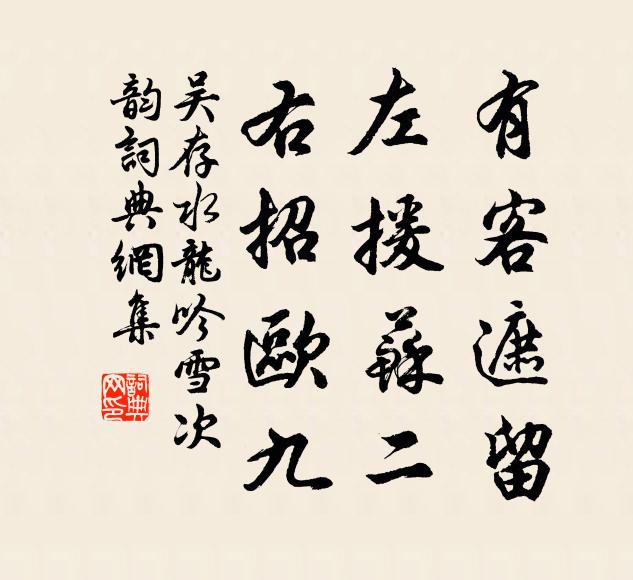 有客遮留
左援蘇二
右招歐九
吴存水龍吟雪次
韵詞典網集
詞典网印